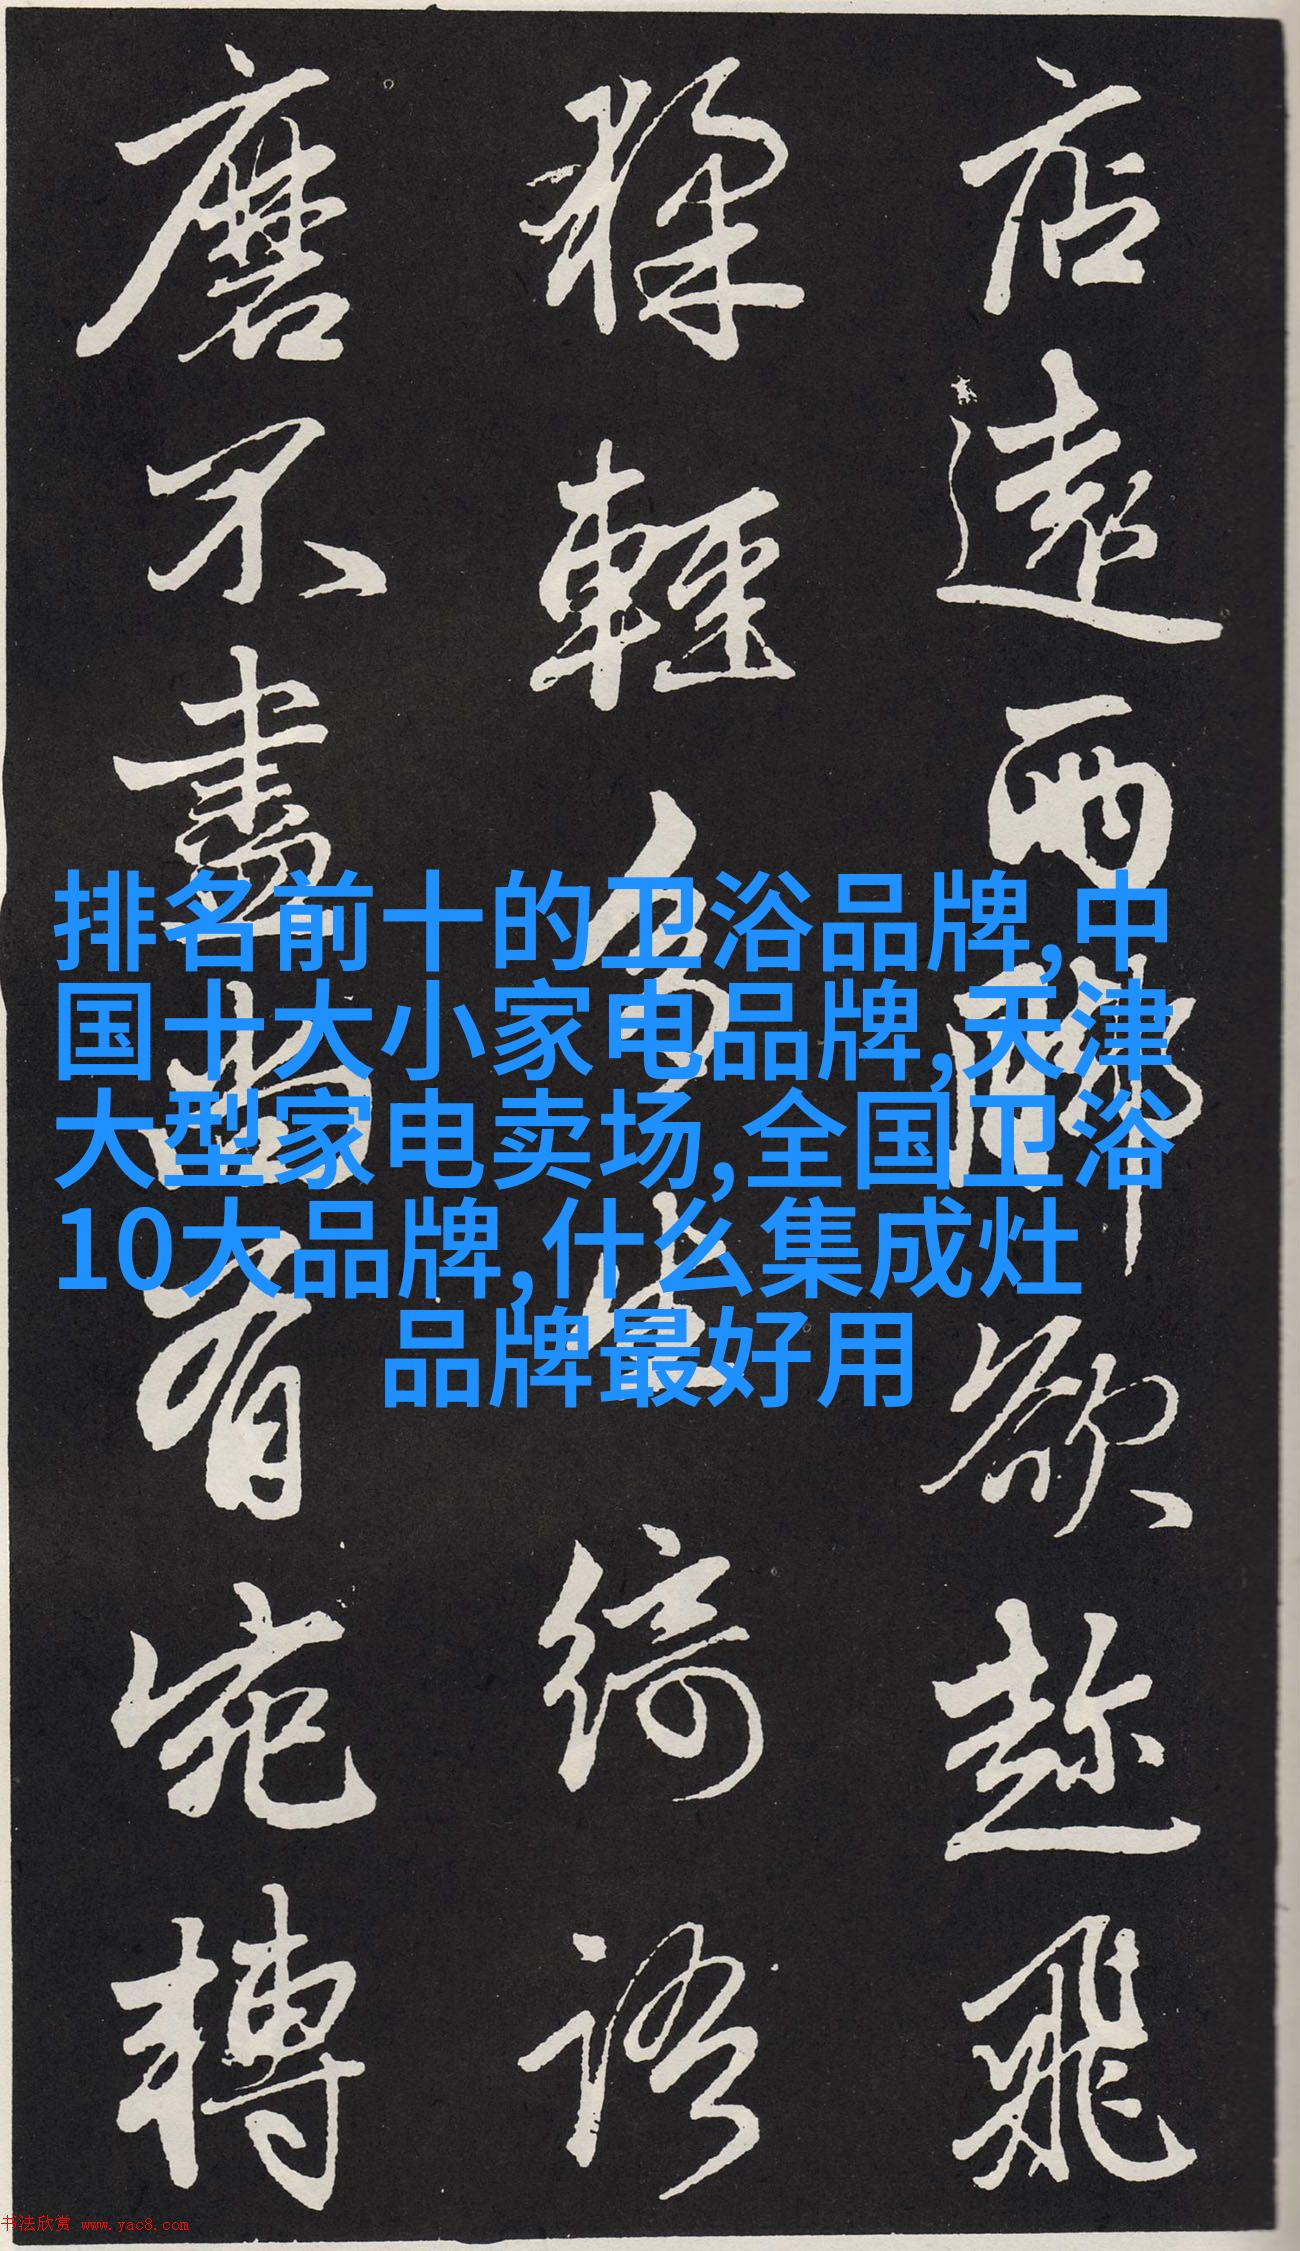 店遠兩腳欲趁飛
猱輕多生綺語
磨不盡尚有宛轉
排名前十的卫浴品牌,中
国十大小家电品牌,天津
大型家电卖场,全国卫浴
10大品牌,什么集成灶
品牌最好用
书法欣赏 www.yac8.com